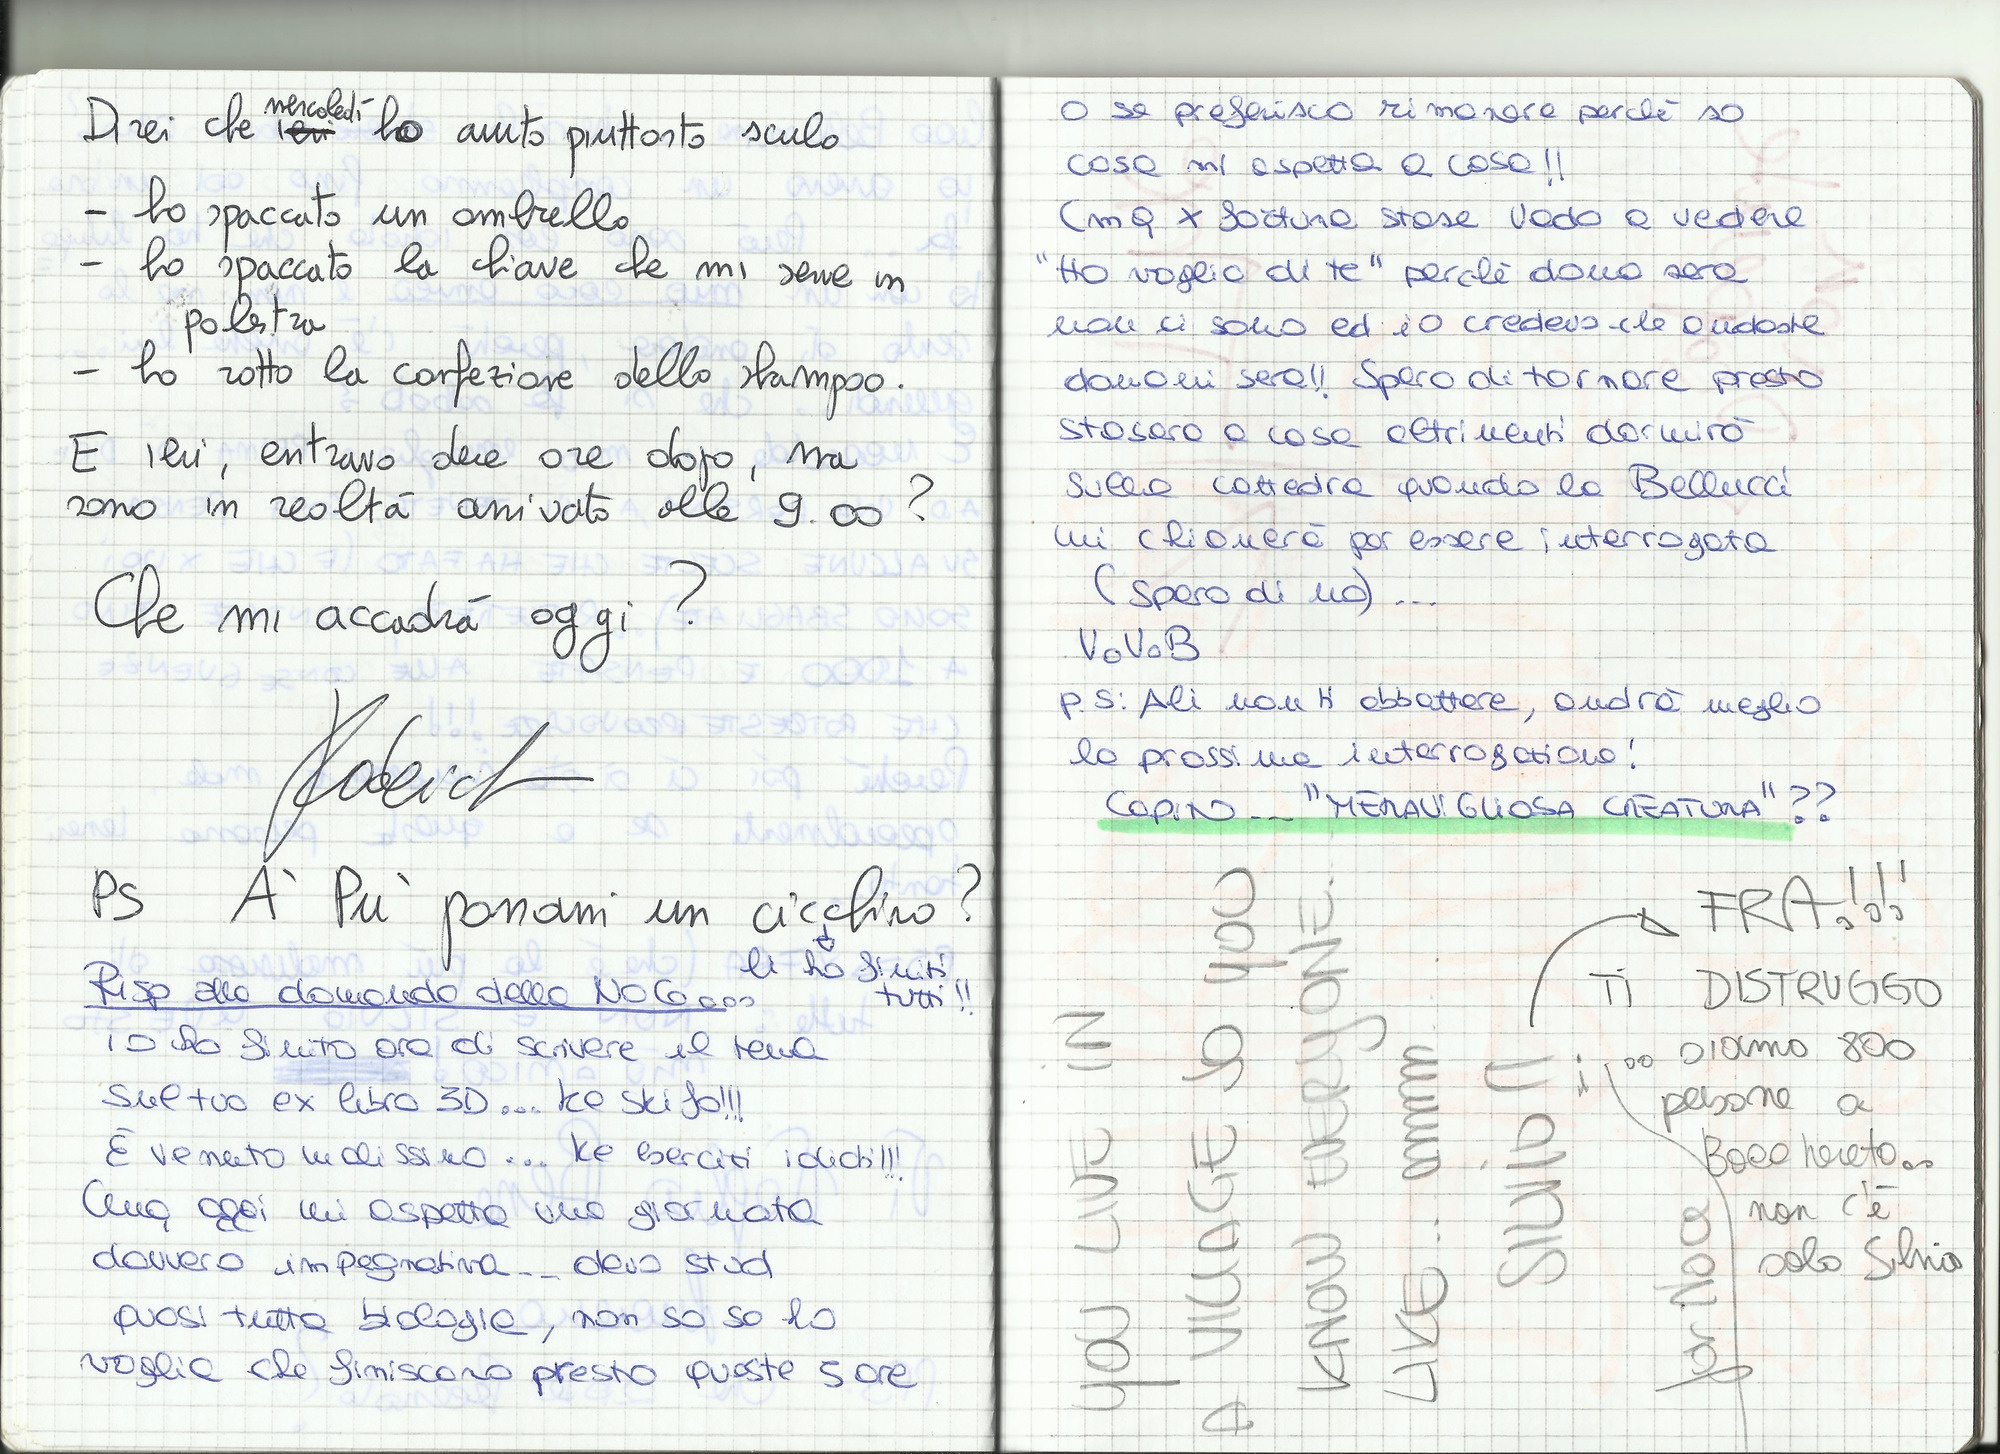 Direi che mercoledì ho avuto piuttosto sculo
- ho spaccato un ombrello
- ho spaccato la chiave che mi serve in
palestra
- ho rotto la confezione dello shampoo.
E ieri, entravo due ore dopo, ma
sono in realtà arrivato alle 9.00?
Che mi accadrà oggi?
PS A' Pu' passami un cicchino?
li ho finiti
tutti!!
Risp alla domanda della NoCo...
io ho finito ora di scrivere il tema
sul tuo ex libro 3D... ke skifo!!!
È venuto malissimo... ke esercizi idioti!!!
Cmq oggi mi aspetta una giornata
davvero impegnativa... devo stud
quasi tutta biologia, non so se ho
voglia che finiscano presto queste 5 ore
o se preferisco rimanere perchè so
cosa mi aspetta a casa!!
(mq x fortuna stase vado a vedere
"Ho voglia di te" perchè doma sera
non ci sono ed io credevo che andaste
domani sera!! Spero di tornare presto
stasera a casa altrimenti dormirò
sulla cattedra quando la Bellucci
mi chiamerà per essere interrogata
(spero di no)...
VoVoB
p.s: Ali non ti abbattere, andrà meglio
la prossima interrogazione!
CAPINO... "MERAVIGLIOSA CREATURA"??
YOU LIVE IN
A VILLAGE SO YOU
KNOW EVERYONE.
LIKE... ammm
SILVIO
FRA!!!
TI DISTRUGGO
.. siamo 800
persone a
Boccheneto..
non c'è
solo Silvio